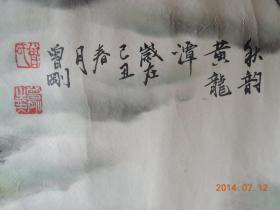 秋韵
黄龍
潭
歲在
己丑
春
月
曾剛
2014.07.12